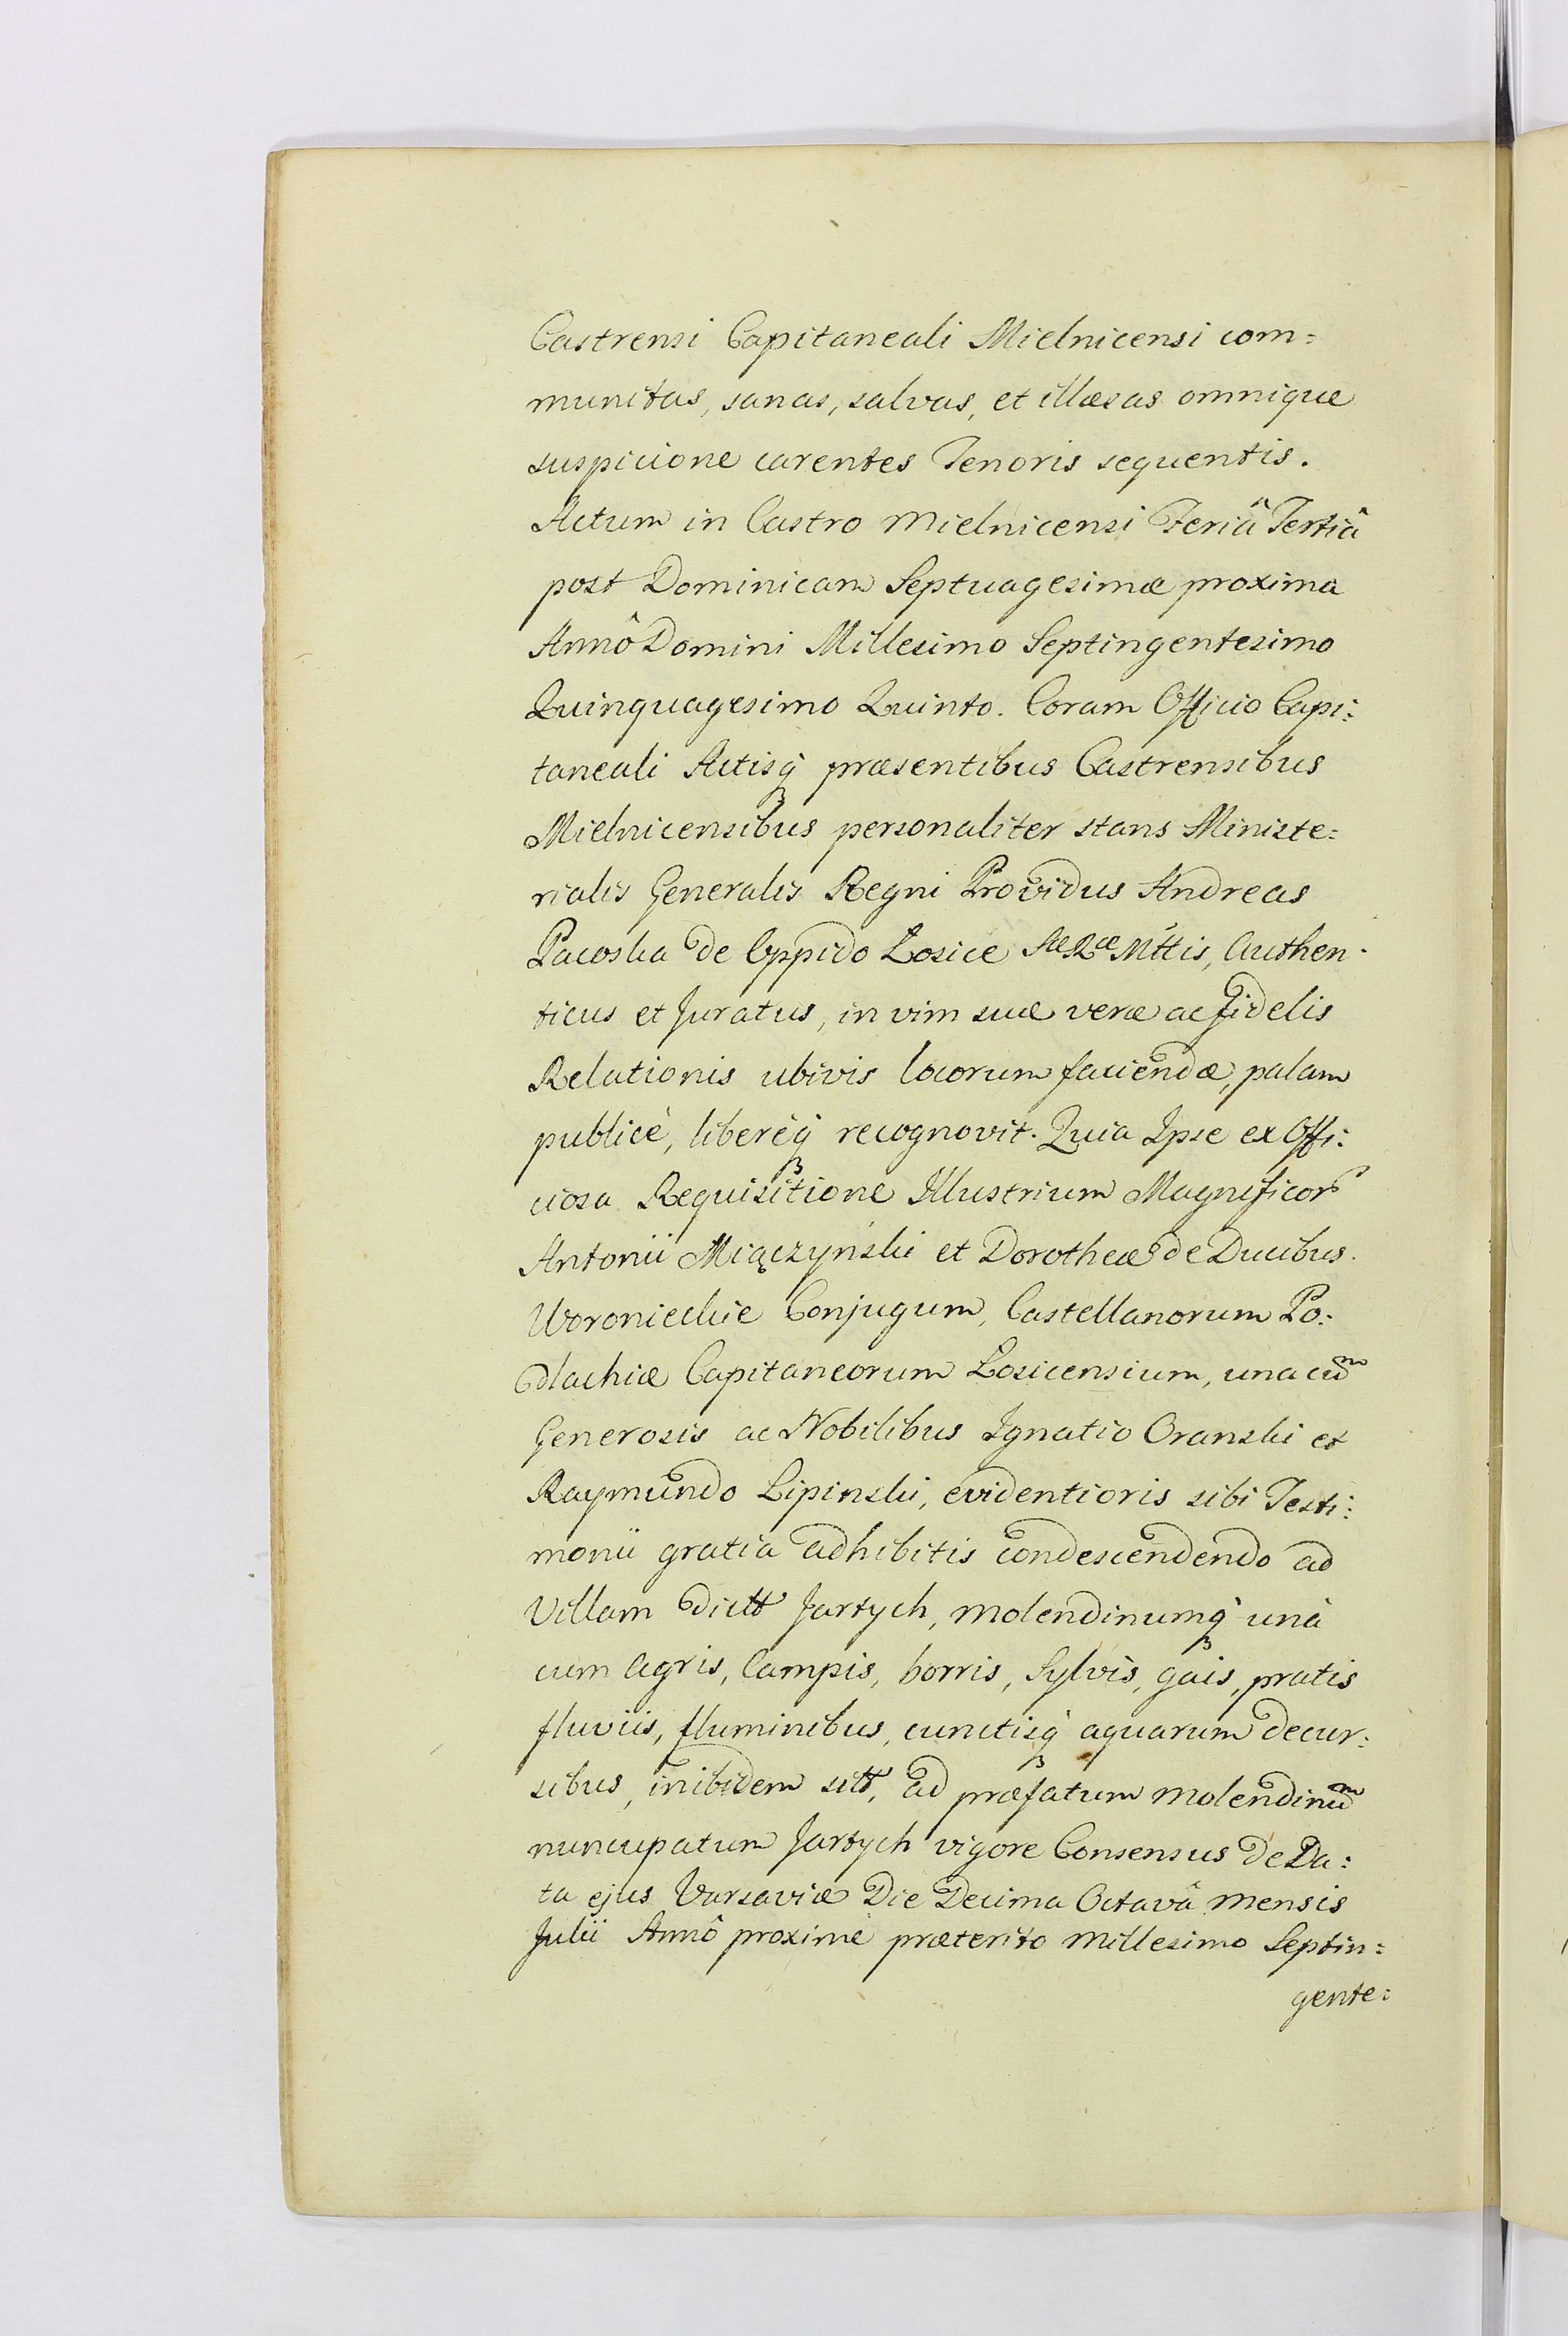 Castrensi Capitaneali Mielnicensi com=
munitas, sanas, salvas, et illæsas omnique
suspicione carentes Tenoris sequentis.
Actum in Castro Mielnicensi Feriâ Tertiâ
post Dominicam Septuagesimæ proxima
Annô Domini Millesimo Septingentesimo
Quinquagesimo Quinto. Coram Officio Capi=
taneali Actisq́ præsentibus Castrensibus
Mielnicensibus personaliter stans Ministe=
rialis Generalis Regni Providus Andreas
Pacoska de Oppido Łosice SæRæMttis, Authen=
ticus et Juratus, in vim suæ veræ ac fidelis
Relationis ubivis locorum faciendæ, palam
publicè, liberèq́ recognovit. Quia Ipse ex Offi=
ciosa Requisitione Illustrium Magnificor
Antonii Miączyński et Dorotheæ de Ducibus
Woronieckie Conjugum, Castellanorum Po=
dlachiæ Capitaneorum Łosicensium, una cum
Generosis ac Nobilibus Ignatio Oranski et
Raymundo Lipinski, evidentioris sibi Testi=
monii gratia adhibitis condescendendo ad
Villam dictt Jartych, molendinumq́ unà
cum Agris, Campis, borris, Sylvis, gais, pratis
fluviis, fluminibus, cunctisq́ aquarum decur=
sibus, inibidem sitt, ad præfatum molendinum
nuncupatum Jartych vigore Consensus de Da=
ta ejus Varsaviæ Die Decima Octavâ mensis
Julii Annô proxime præterito Millesimo Septin=
gente=